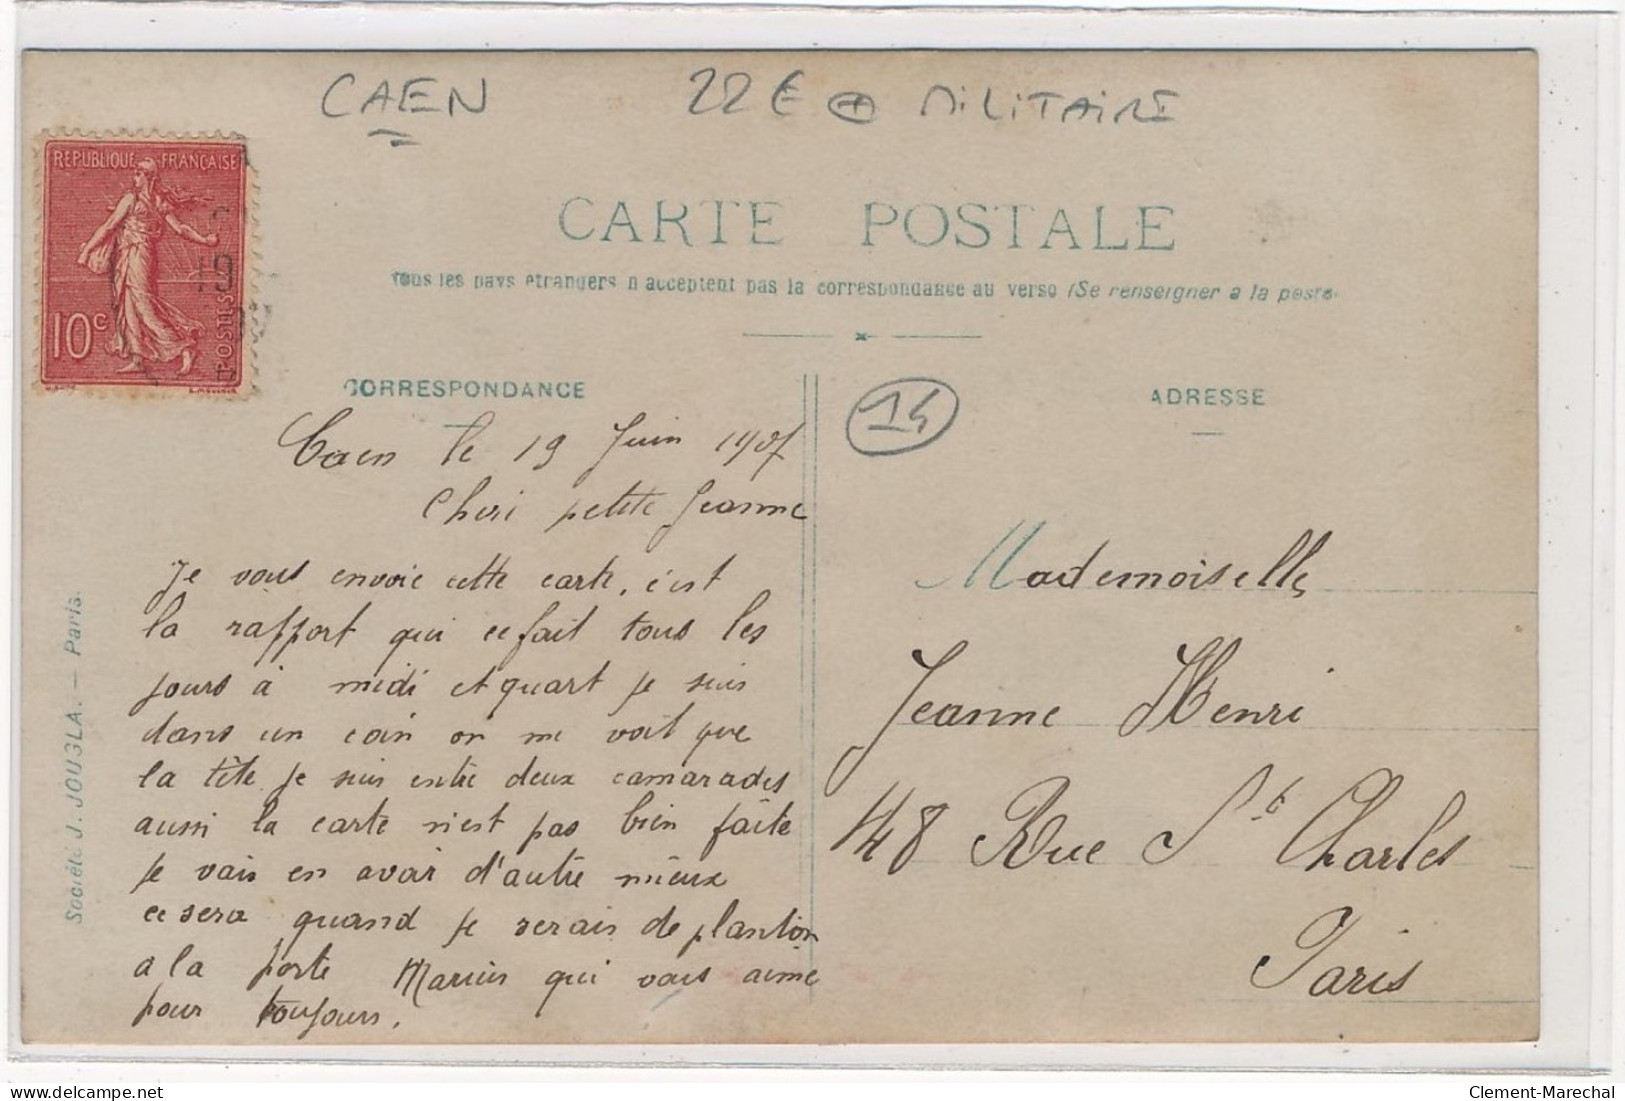 CAEN 22€ + MILITAIRE
REPUBLIQUE FRANÇAISE
10c
POSTES
19
CARTE POSTALE
Tous les pays étrangers n'acceptent pas la correspondance au verso (Se renseigner à la poste)
CORRESPONDANCE
Caen le 19 Juin 1907
Cheri petite Jeanne
Je vous envoie cette carte, c'est
la rapport qui ce fait tous les
jours à midi et quart je suis
dans un coin on me voit que
la tête je suis entre deux camarades
aussi la carte n'est pas bien faite
je vais en avoir d'autre mieux
ce sera quand je serais de planton
a la porte Marius qui vous aime
pour toujours.
14
ADRESSE
Mademoiselle
Jeanne Henri
148 Rue St Charles
Paris
Société J. JOUGLA. — Paris.
Clement-Marechal